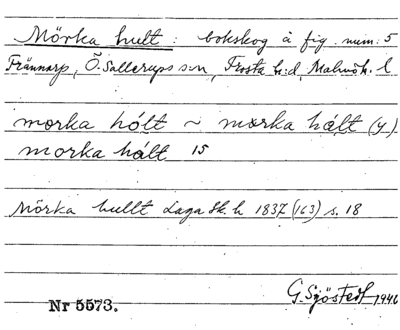 Mörka hult : bokskog å fig. num. 5
Frännarp, Ö. Sallerups s:n, Frosta h:d, Malmöh. l
mørka hólt ~ mørka hált (y.)
mørka hált 15
Mörka hullt Laga Sk. h 1837 (163) s. 18
G. Sjöstedt 1946
Nr 5573.